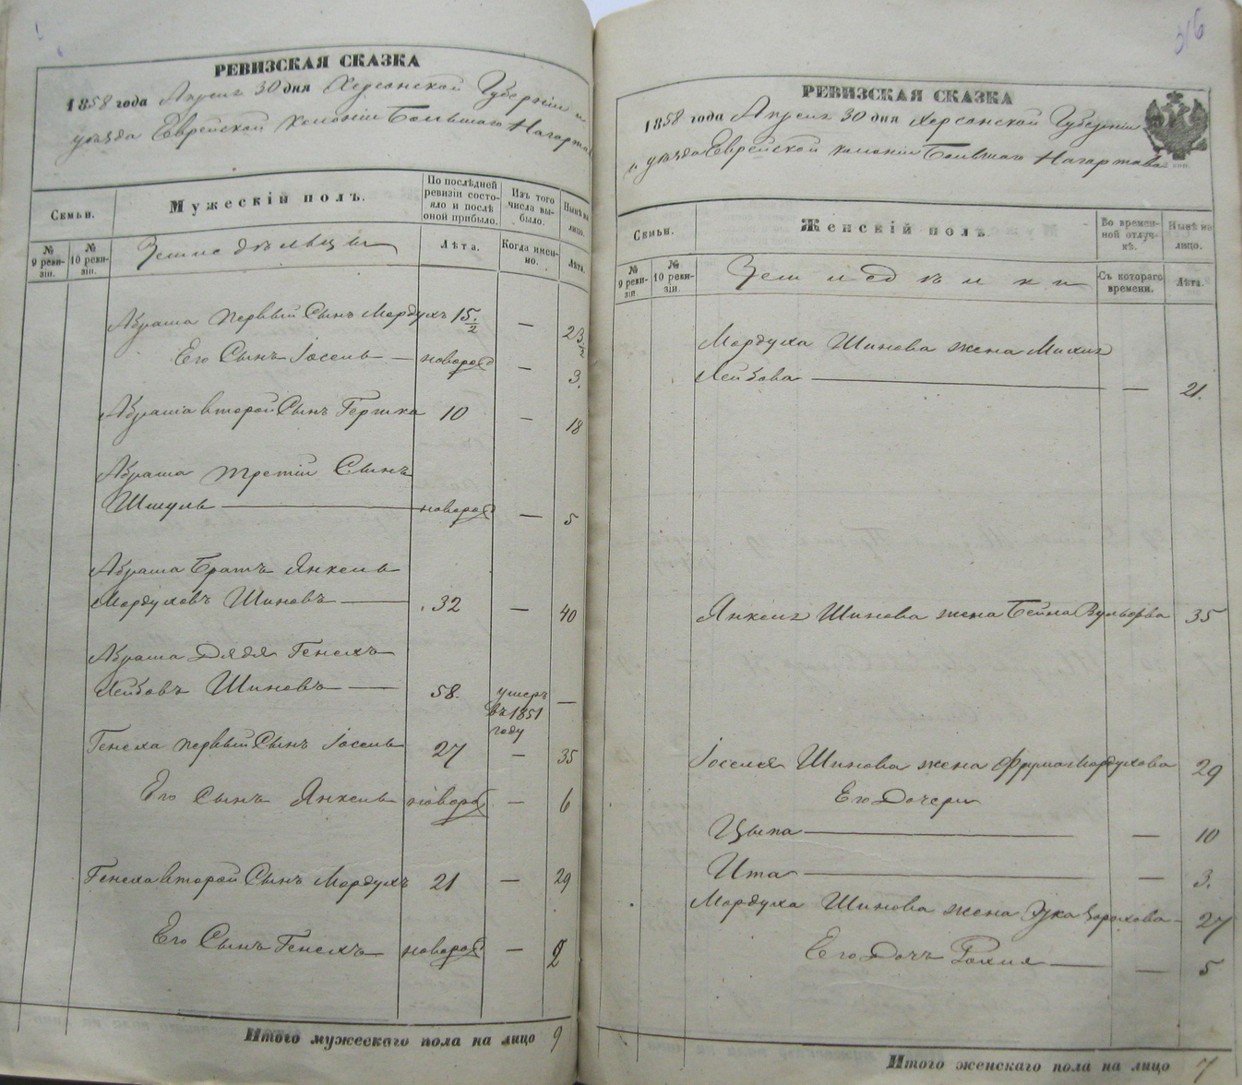 РЕВИЗСКАЯ СКАЗКА
1858 года Апреля 30 дня Херсонской Губерніи и
уѣзда Еврейской колоніи Большаго Нагартова
Семьи.
Мужескій полъ.
По послѣдней ревизіи состояло и послѣ оной прибыло.
Изъ того числа выбыло.
Нынѣ на лицо.
№ 9 ревизіи.
№ 10 ревизіи.
Земледѣльцы
Лѣта.
Когда именно.
Лѣта.
Абраша первый Сынъ Мордухъ 15 1/2 — 23 1/2
Его Сынъ Іосель — новорож — 3.
Абраша второй Сынъ Гершка 10 — 18
Абраша третій Сынъ
Шмуль — новорож — 5
Абраша Братъ Янкель
Мордуховъ Шиновъ — 32 — 40
Абраша Дядя Генехъ
Лейбовъ Шиновъ — 58. умеръ въ 1851 году —
Генеха первый Сынъ Іосель 27 — 35
Его Сынъ Янкель новорож — 6
Генеха второй Сынъ Мордухъ 21 — 29
Его Сынъ Генехъ новорож — 2
Итого мужескаго пола на лицо 9
316
РЕВИЗСКАЯ СКАЗКА
1858 года Апреля 30 дня Херсонской Губерніи
и уѣзда Еврейской колоніи Большаго Нагартова
Семьи.
Женскій полъ.
Во временной отлучкѣ.
Нынѣ на лицо.
№ 9 ревизіи
№ 10 ревизіи.
Съ котораго времени.
Лѣта.
Мордуха Шинова жена
Лейбова — — 21.
Янкеля Шинова жена Бейла Вульфова 35
Іоселя Шинова жена Фрума Мордухова 29
Его Дочери
Цыпа — — 10
Ита — — 3.
Мордуха Шинова жена — 27
Его Дочь Рохля — — 5
Итого женскаго пола на лицо 7